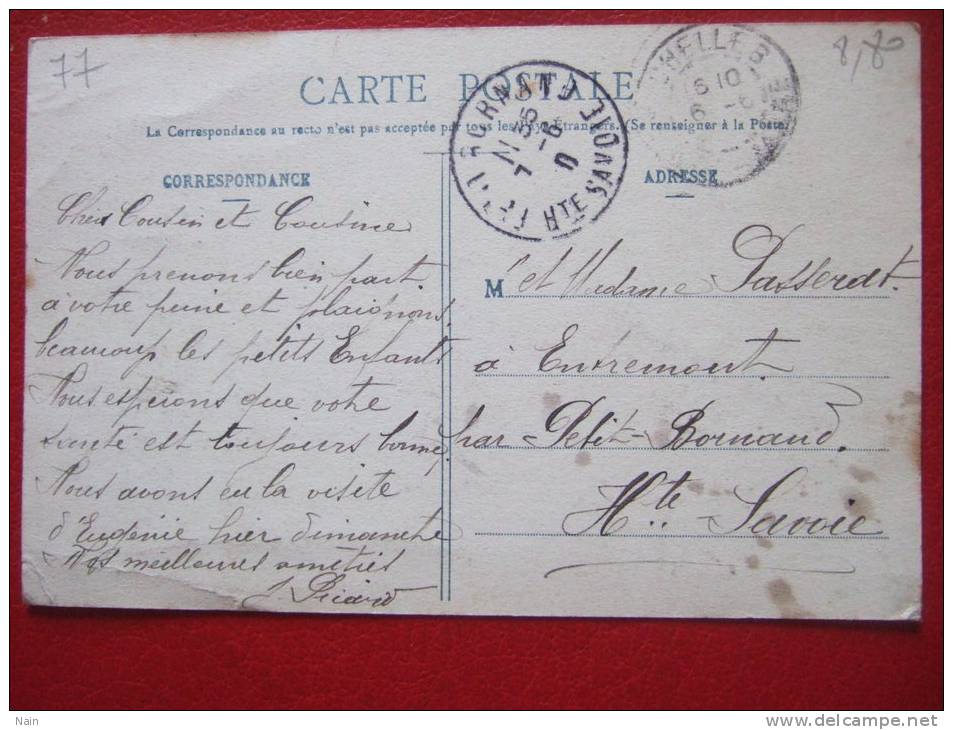 77
8,80
CARTE POSTALE
La Correspondance au recto n'est pas acceptée par tous les Pays Étrangers. (Se renseigner à la Poste)
CORRESPONDANCE
ADRESSE
HTE SAVOIE
Chers Cousin et Cousine
Nous prenons bien part
à votre peine et plaignons
beaucoup les petits Enfants
Nous espérons que votre
santé est toujours bonne,
Nous avons eu la visite
d'Eugénie hier dimanche
Nos meilleures amitiés
Picard
M et Madame Passerat.
à Entremont
par Petit-Bornand.
Hte Savoie
Nain
www.delcampe.net